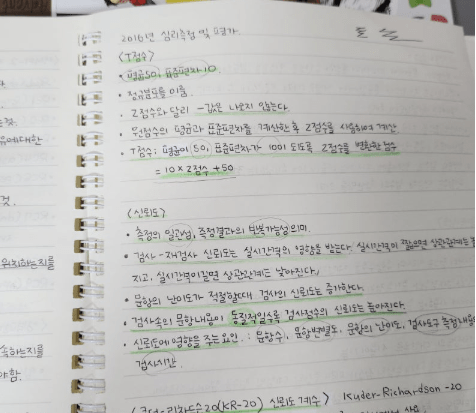 2016년 심리측정 및 평가
<T점수>
• 평균50, 표준편차10.
• 정규분포를 이룸.
• Z점수와 달리 -값은 나오지 않는다.
• 원점수의 평균과 표준편차를 계산한 후 Z점수를 사용하여 계산.
• T점수: 평균이 50, 표준편차가 10이 되도록 Z점수를 변환한 점수
= 10 × Z점수 + 50
<신뢰도>
• 측정의 일관성, 측정결과의 반복가능성 의미.
• 검사-재검사 신뢰도는 실시간격의 영향을 받는다. 실시간격이 짧으면 상관관계는 높
지고, 실시간격이 길면 상관관계는 낮아진다.
• 문항의 난이도가 적절할때 검사의 신뢰도는 증가한다.
• 검사속의 문항내용이 동질적일수록 검사점수의 신뢰도는 높아진다.
• 신뢰도에 영향을 주는요인 : 문항수, 문항변별도, 문항의 난이도, 검사도구 측정내용의
검사시간.
20(KR-20) 신뢰도계수> Kuder-Richardson-20
유에대한
것.
위치하는지를
속하는지를
야함.